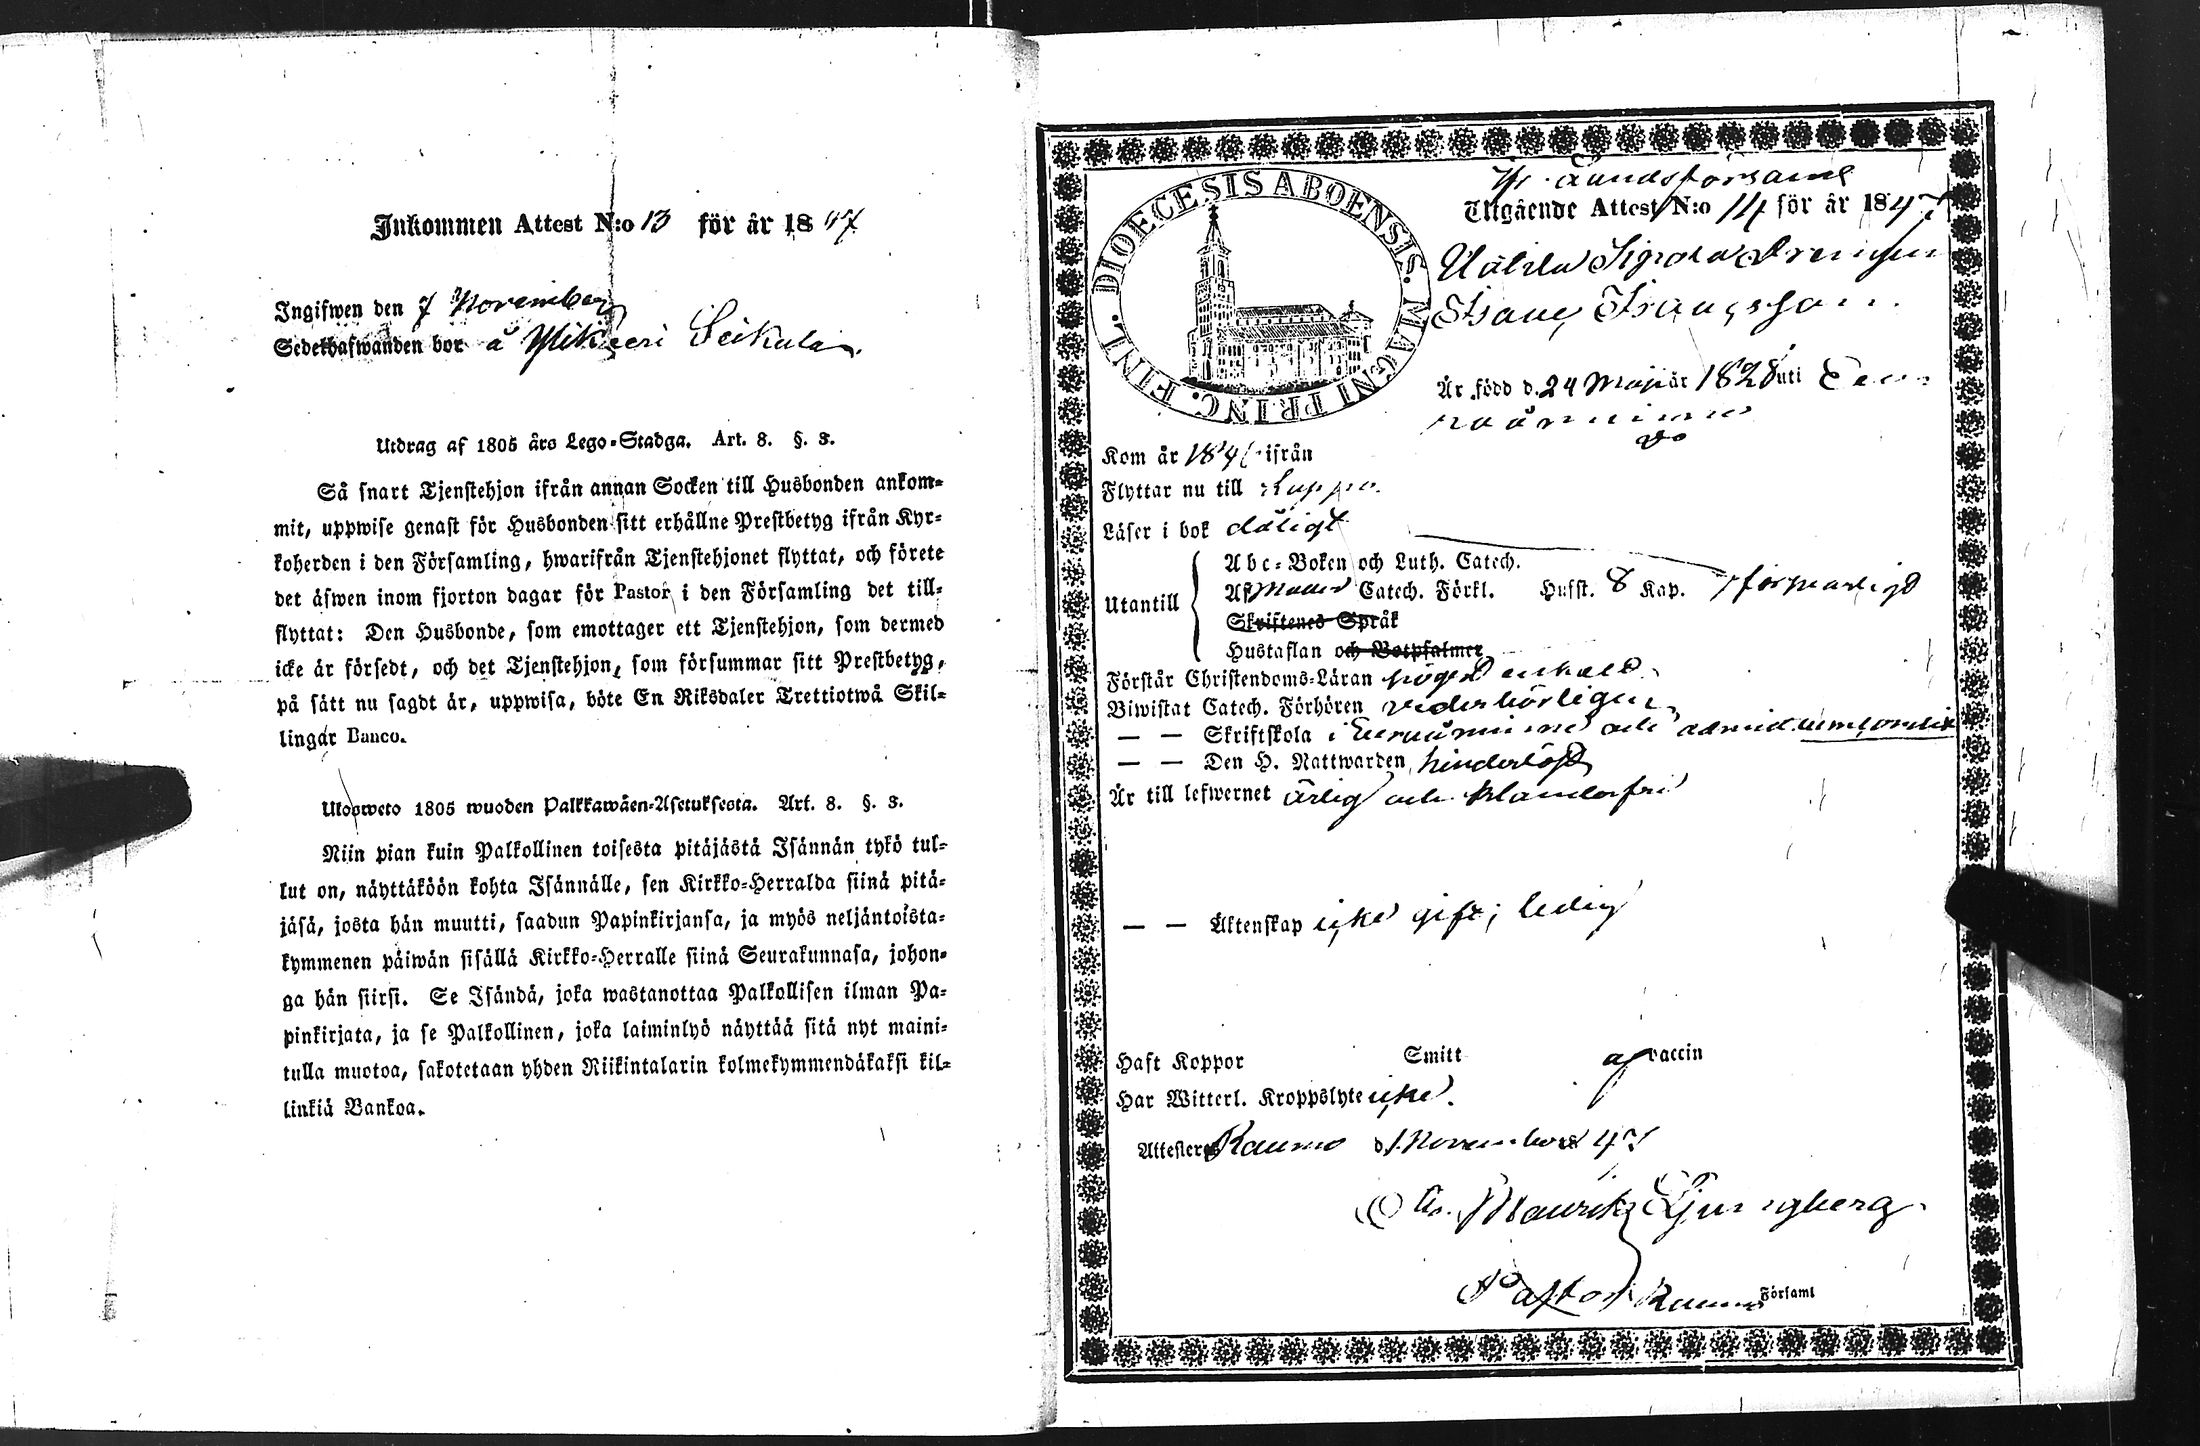 Inkommen Attest N:o 13 för år 1847
Ingifwen den 7 November
Sedelhafwanden bor å Ylikjeri Seikula.
Utdrag af 1805 års Lego-Stadga. Art. 8. §. 3.
Så snart Tjenstehjon ifrån annan Socken till Husbonden ankom-
mit, uppwise genast för Husbonden sitt erhållne Prestbetyg ifrån Kyr-
koherden i den Församling, hwarifrån Tjenstehjonet flyttat, och förete
det äfwen inom fjorton dagar för Pastor i den Församling det till-
flyttat: Den Husbonde, som emottager ett Tjenstehjon, som dermed
icke är försedt, och det Tjenstehjon, som försummar sitt Prestbetyg,
på sätt nu sagdt är, uppwisa, böte En Riksdaler Trettiotwå Skil-
lingar Banco.
Ulosweto 1805 wuoden Palkkawäen-Asetuksesta. Art. 8. §. 3.
Niin pian kuin Palkollinen toisesta pitäjästä Isännän tykö tul-
lut on, näyttäköön kohta Isännälle, sen Kirkko-Herralda siinä pitä-
jäsä, josta hän muutti, saadun Papinkirjansa, ja myös neljäntoista-
kymmenen päiwän sisällä Kirkko-Herralle siinä Seurakunnasa, johon-
ga hän siirsi. Se Isändä, joka wastanottaa Palkollisen ilman Pa-
pinkirjata, ja se Palkollinen, joka laiminlyö näyttää sitä nyt maini-
tulla muotoa, sakotetaan yhden Riikintalarin kolmekymmendäkaksi kil-
linkiä Bankoa.
DIOECESIS ABOENSIS. MAGNI PRINC. FINL.
Landsförsaml
Utgående Attest N:o 14 för år 1847
Sipola Drengen
Isaac Isaacsson.
Är född d. 24 Maji år 1828 uti
Kom år 184 ifrån do
Flyttar nu till Lappo.
Läser i bok dåligt
Utantill
Abc-Boken och Luth. Catech.
Af Catech. Förkl. Hufst. 8 Kap. försvarligt
Skriftenes Språk
Hustaflan och Botpsalmer
Förstår Christendoms-Läran högst enkelt.
Biwistat Catech. Förhören vederbörligen,
— — Skriftskola i och
— — Den H. Nattwarden, hinderlöst
Är till lefwernet ärlig och klanderfri
— — Äktenskap icke gift; ledig
Haft Koppor Smitt af vaccin
Har Witterl. Kroppslyte icke.
Attesterar Raumo d 1 November 47
Mauritz Ljungberg.
Pastor i Raumo Församl